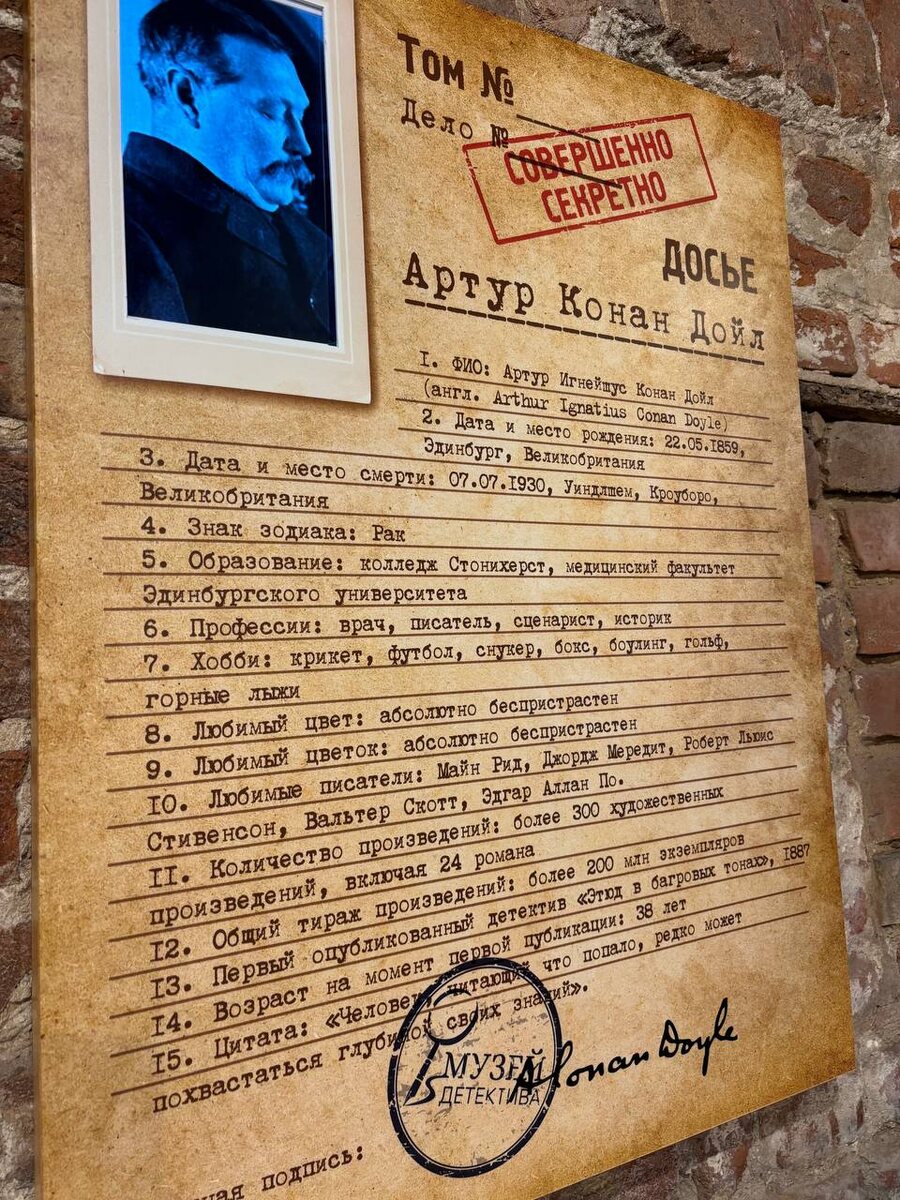 Том №
Дело №
СОВЕРШЕННО
СЕКРЕТНО
ДОСЬЕ
Артур Конан Дойл
1. ФИО: Артур Игнейшус Конан Дойл
(англ. Arthur Ignatius Conan Doyle)
2. Дата и место рождения: 22.05.1859,
Эдинбург, Великобритания
3. Дата и место смерти: 07.07.1930, Уиндлшем, Кроуборо,
Великобритания
4. Знак зодиака: Рак
5. Образование: колледж Стонихерст, медицинский факультет
Эдинбургского университета
6. Профессии: врач, писатель, сценарист, историк
7. Хобби: крикет, футбол, снукер, бокс, боулинг, гольф,
горные лыжи
8. Любимый цвет: абсолютно беспристрастен
9. Любимый цветок: абсолютно беспристрастен
10. Любимые писатели: Майн Рид, Джордж Мередит, Роберт Льюис
Стивенсон, Вальтер Скотт, Эдгар Аллан По.
11. Количество произведений: более 300 художественных
произведений, включая 24 романа
12. Общий тираж произведений: более 200 млн экземпляров
13. Первый опубликованный детектив «Этюд в багровых тонах», 1887
14. Возраст на момент первой публикации: 38 лет
15. Цитата: «Человек, читающий что попало, редко может
похвастаться глубиной своих знаний».
МУЗЕЙ
ДЕТЕКТИВА
A Conan Doyle
подпись: